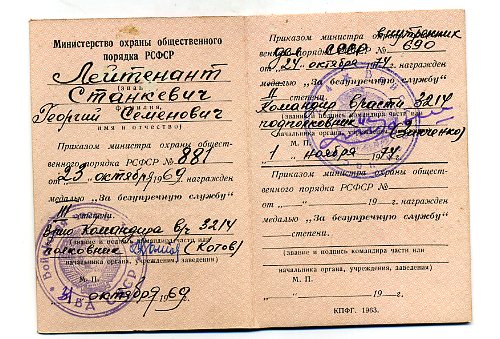 Министерство охраны общественного
порядка РСФСР
Лейтенант
(звание,
Станкевич
фамилия,
Георгий Семенович
имя и отчество)
Приказом министра охраны общест-
венного порядка РСФСР № 881
от „23" октября 1969 г. награжден
медалью „За безупречную службу"
III степени.
Врио Командира в/ч 3214
(звание и подпись командира части или
полковник (Котов)
начальника органа, учреждения, заведения)
М. П.
октября 1969 г.
Приказом министра внутренних
дел СССР № 690
от „24" октября 1974 г. награжден
медалью „За безупречную службу"
II степени.
Командир в/части 3214
(звание и подпись командира части или
подполковник
начальника органа, учреждения, заведения)
М. П.
„1" ноября 1974 г.
Приказом министра охраны общест-
венного порядка РСФСР №
от „ " 19 г. награжден
медалью „За безупречную службу"
степени.
(звание и подпись командира части или
начальника органа, учреждения, заведения)
М. П.
„ " 19 г.
КПФГ. 1963.